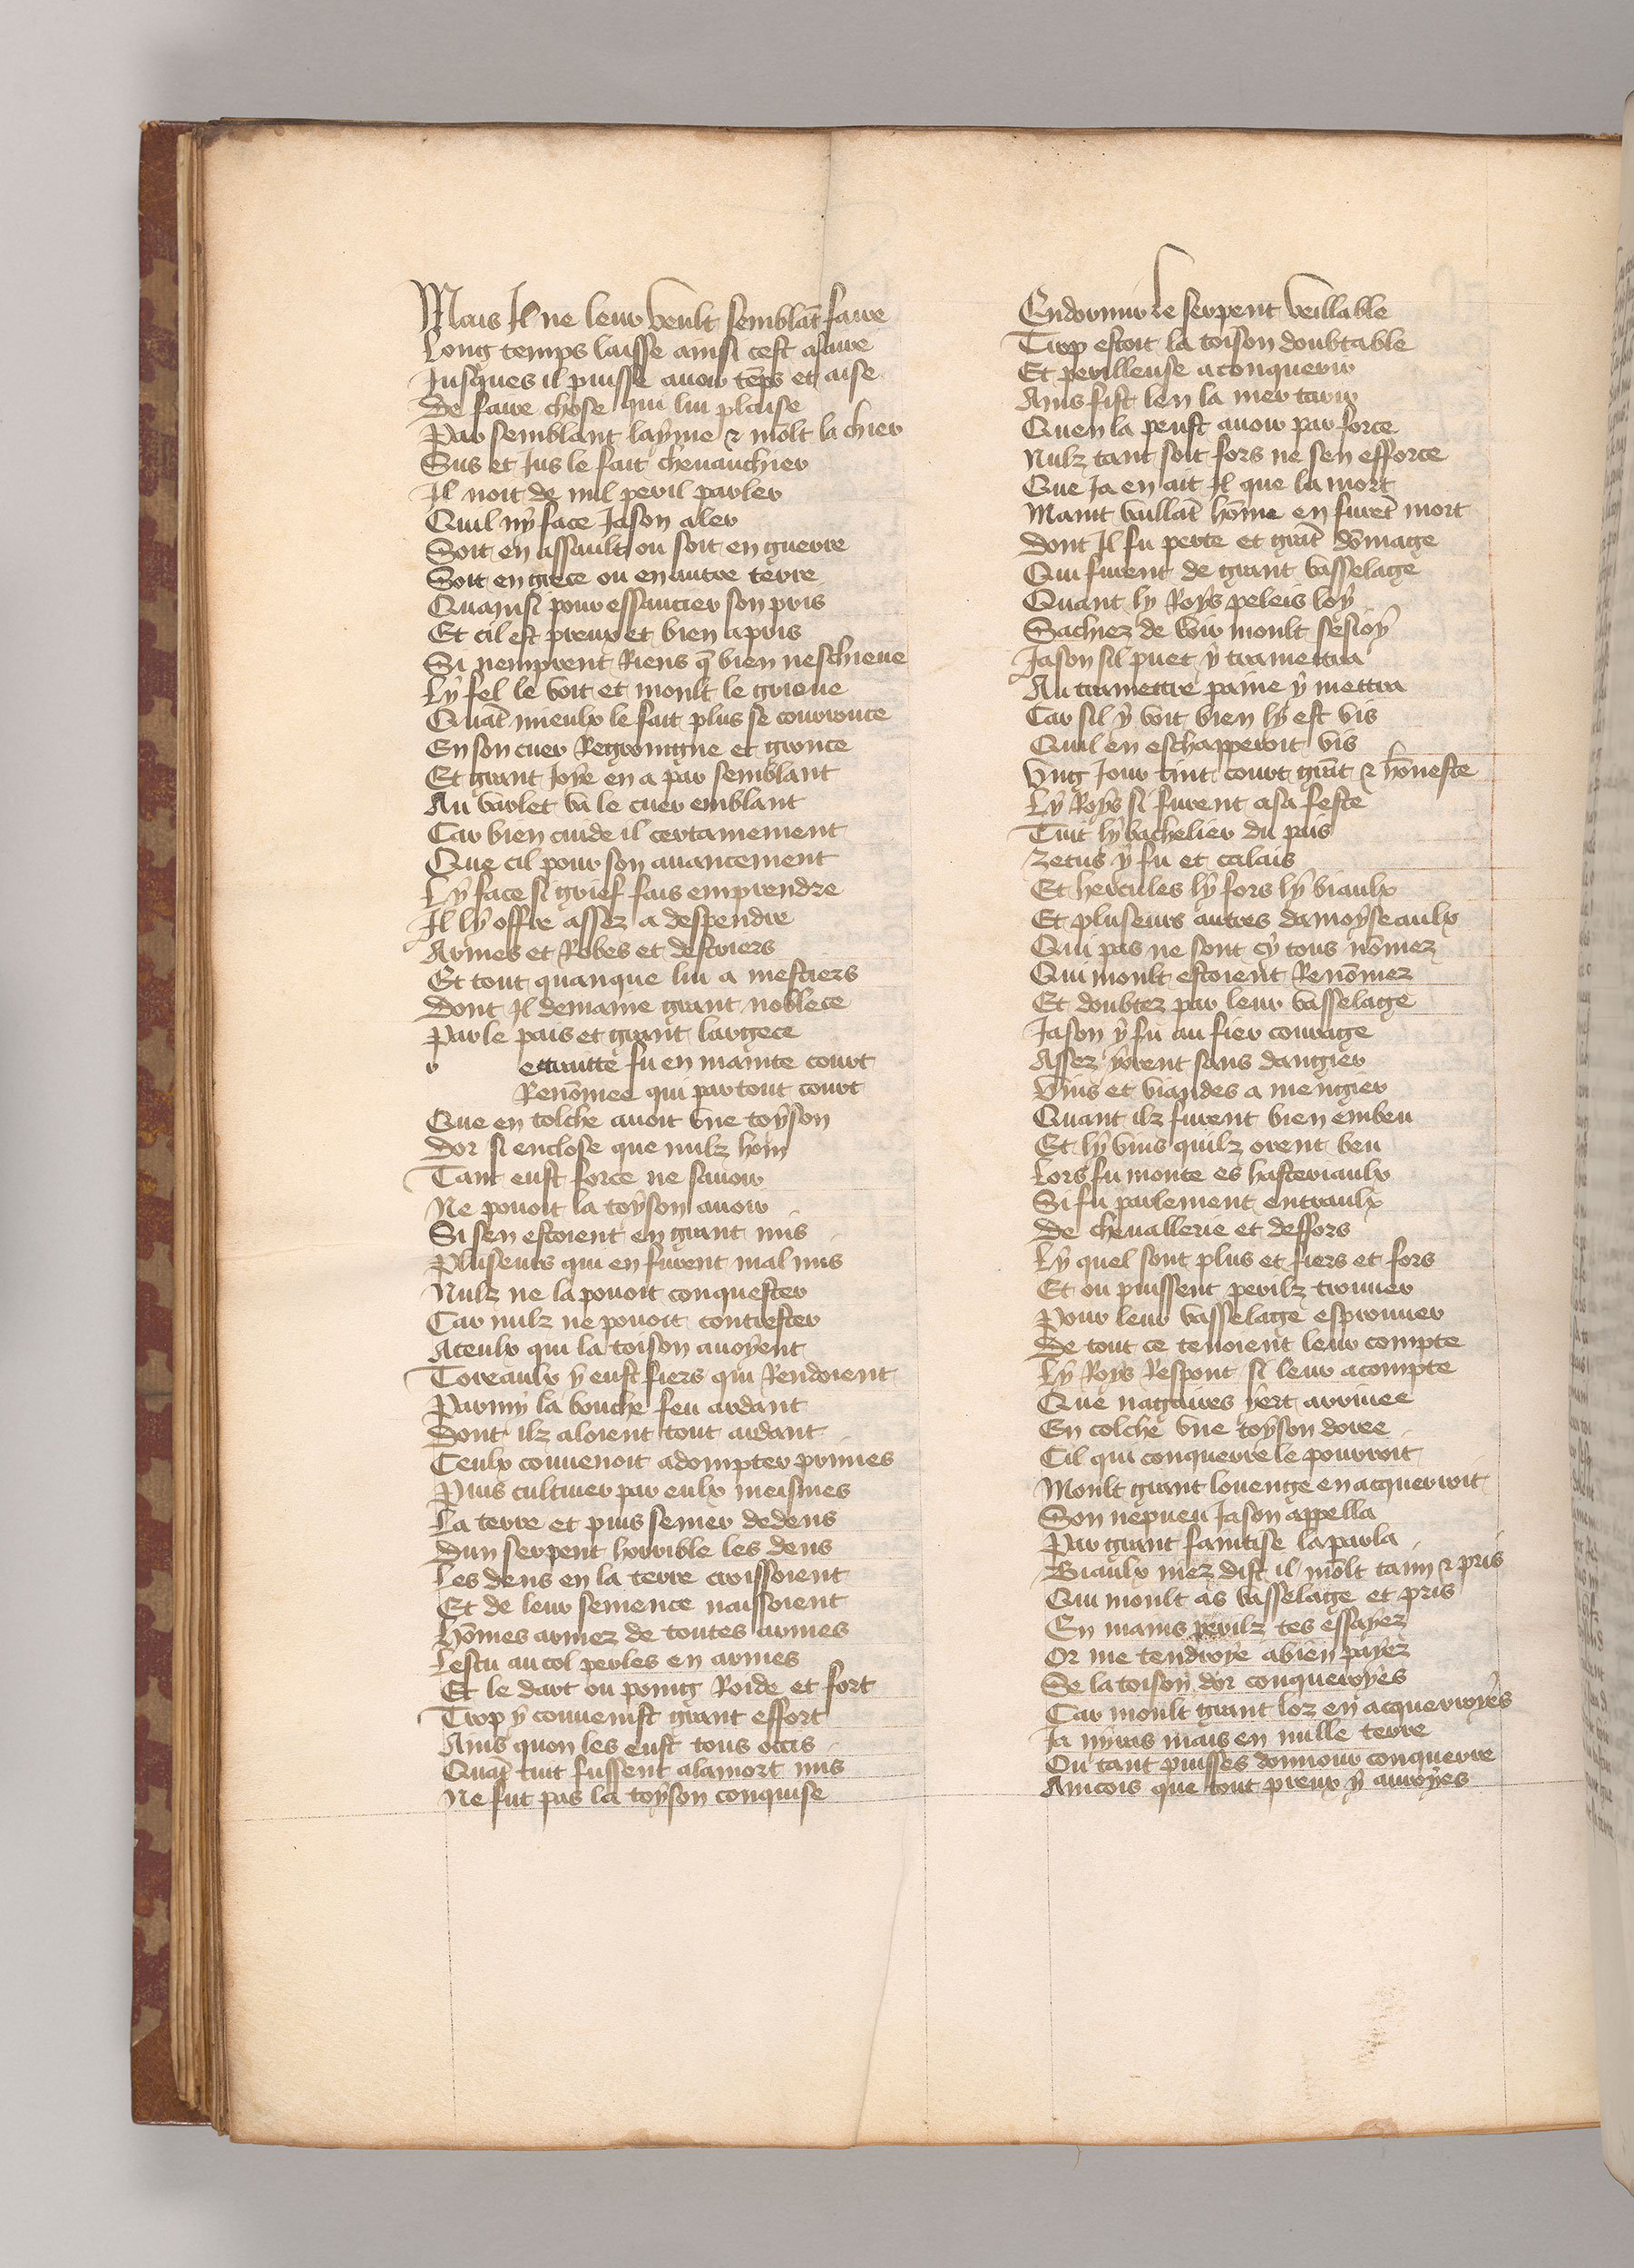 Mais Il ne leur veult semblāt faire
Long temps laisse ainsi cest afaire
Jusques il puisse auoir tēps et aise
De faire chose qui lui plaise
Par semblant layme & mōlt la chier
Sus et Jus le fait cheuauchier
Il noit de nul peril parler
Quil ny face Jason aler
Soit en assault ou soit en guerre
Soit en grece ou en autre terre
Quainsi pour essaucier son pris
Et cil est preux et bien apris
Si nemprent Riens q̄ bien neschieue
Ly fel le voit et moult le grieue
Quāt mieulx le fait plus se courrouce
En son cuer Regroingne et grouce
Et grant Joye en a par semblant
Au varlet va le cuer emblant
Car bien cuide il certainement
Que cil pour son auancement
Ly face si grief fais emprendre
Il ly offre assez a despendre
Armes et Robes et destriers
Et tout quanque lui a mestiers
Dont Il demaine grant noblece
Par le pais et grant largece
r etraitte fu en mainte court
Renōmee qui par tout court
Que en colche auoit vne toyson
Dor si enclose que nulz hom
Tant eust force ne sauoir
Ne pouoit la toyson auoir
Si sen estoient en grant mis
Pluseurs qui en furent mal mis
Nulz ne la pouoit conquester
Car nulz ne pouoit contrester
Aceulx qui la toison auoyent
Toreaulx y eust fiers qui Rendoient
Parmy la bouche feu ardant
Dont ilz aloient tout ardant
Ceulx conuenoit adompter primes
Puis cultiuer par eulx meismes
La terre et puis semer dedens
Dun serpent horrible les dens
Les dens en la terre croissoient
Et de leur semence naissoient
Hōmes armez de toutes armes
Lescu au col perles en armes
Et le dart ou poing Roide et fort
Trop y conuenist grant effort
Ains quon les eust tous occis
Quāt tuit fussent alamort mis
Ne fut pas la toyson conquise
Endormir le serpent veillable
Trop estoit la toison doubtable
Et perilleuse aconquerir
Ains fist len la mer tarir
Quen la peust auoir par force
Nulz tant soit fors ne sen efforce
Que Ja en ait Il que la mort
Maint vaillāt hōme en furēt mort
Dont Il fu perte et grāt dōmage
Qui furent de grant vasselage
Quant ly Roys peleis loy
Sachiez de voir moult sesioy
Jason sil puet y tramettra
Au tramettre paine y mettra
Car sil y voit bien ly est vis
Quil en eschapperoit vis
Vng Jour tint court grāt & hōneste
Ly Roys si furent asa feste
Tuit ly bachelier du pais
Zetus y fu et calais
Et hercules ly fors ly biaulx
Et pluseurs autres damoyseaulx
Qui pas ne sont cy tous nōmez
Qui moult estoient Renōmez
Et doubtez par leur vasselage
Jason y fu au fier courage
Assez yorent sans dangier
Vins et viandes a mengier
Quant ilz furent bien embeu
Et ly vins quilz orent beu
Lors fu monte es hasteriaulx
Si fu parlement entraulx
De cheuallerie et deffors
Ly quel sont plus et fiers et fors
Et ou puissent perilz trouuer
Pour leur vasselage esprouuer
De tout ce tenoient leur compte
Ly Roys Respont si leur acompte
Que nagaires yert arriuee
En colche vne toyson doree
Cil qui conquerre le pourroit
Moult grant louenge en acquerroit
Son nepueu Jason appella
Par grant faintise laparla
Biaulx niez dist il mōlt taim & pris
Qui moult as vasselage et pris
En mains perilz tes essayez
Or me tendroye abien payez
Se la toison dor conqueroyes
Car moult grant loz en acquerroyes
Ja nyras mais en nulle terre
Ou tant puisses donnour conquerre
Aincois que tout preux y auroyes